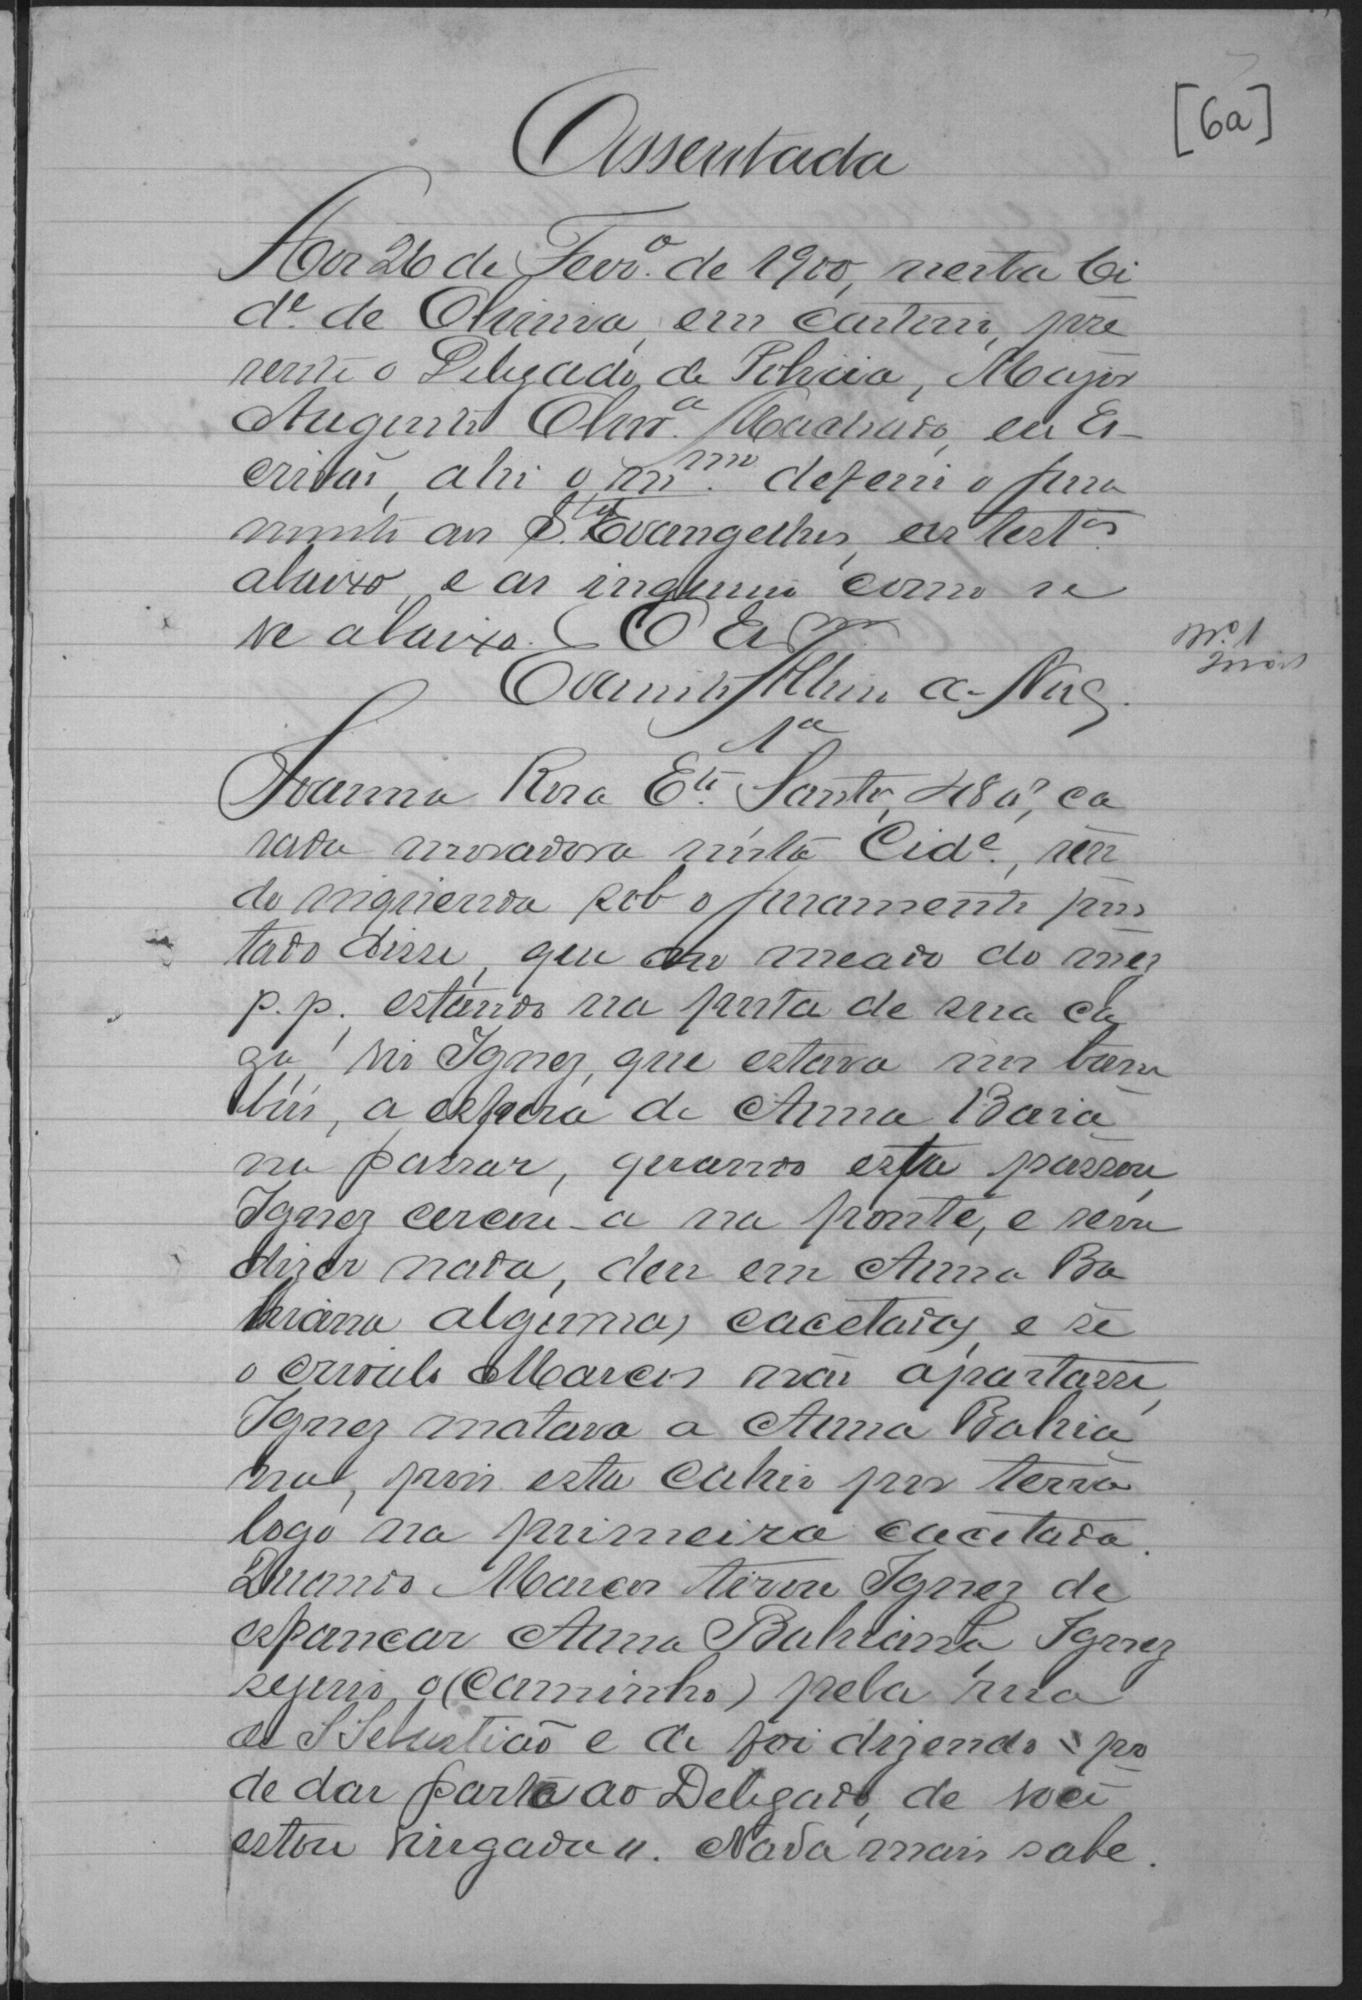 [6a]
Assentada
Aos 26 de Fevr.o de 1900, nesta Ci
d.e de Oliveira, em cartorio, pre
sente o Delegado de Policia, Major
Augusto Olivr.a Machado, eu Es-
crivão, ahi o m.mo deferi o jura
mento aos S.tos Evangelhos, as test.as
abaixo, e as inqueriu como se
ve abaixo. O Esc.m
Evaristo
1a
Joanna Rosa E.to Santo, 48 a.s, ca
sada moradora nesta Cid.e, sen
do inquerida sob o juramento pres
tado disse, que ao meado do mez
p.p. estando na porta de sua ca
za, vio Ignez, que estava nos bam
bús, a espera de Anna Baia
na passar, quando esta passou,
Ignez cercou-a na ponte, e sem
dizer nada, deu em Anna Ba
hiana algumas cacetadas, e se
o crioulo Marcos não apartasse,
Ignez matava a Anna Bahia
na, pois esta cahio por terra
logo na primeira cacetada.
Quando Marcos tirou Ignez de
espancar Anna Bahiana, Ignez
seguio o (caminho) pela rua
de S Sebastião e de foi dizendo " po
de dar parte ao Delegado, de você
estou vingada ". Nada mais sabe.